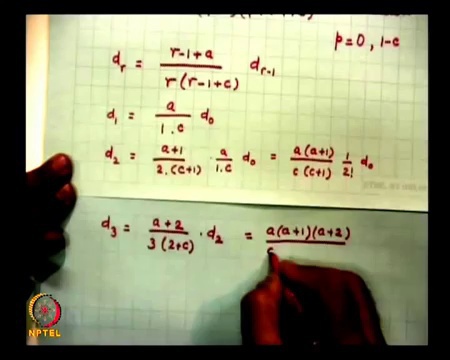 p=0, 1-c
d_r = (r-1+a) / (r(r-1+c)) d_{r-1}
d_1 = a / (1.c) d_0
d_2 = (a+1) / (2.(c+1)) . a / (1.c) d_0 = a(a+1) / (c(c+1)) 1/2! d_0
d_3 = (a+2) / (3(2+c)) . d_2 = a(a+1)(a+2) / c
NPTEL